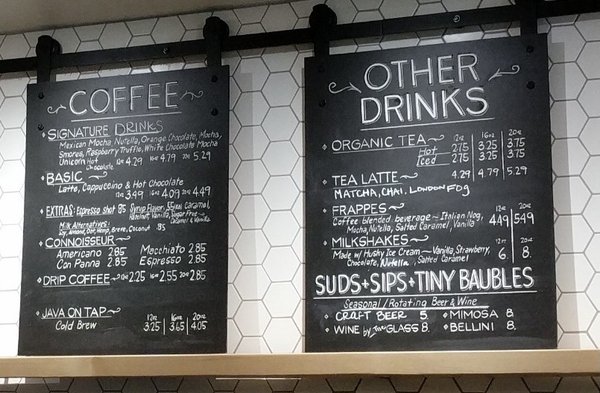 COFFEE
SIGNATURE DRINKS
Mexican Mocha, Nutella, Orange Chocolate, Mocha,
Smores, Raspberry Truffle, White Chocolate Mocha
Unicorn Hot Chocolate 12oz 4.29 16oz 4.79 20oz 5.29
BASIC
Latte, Cappuccino & Hot Chocolate
12oz 3.49 16oz 4.09 20oz 4.49
EXTRAS: Espresso shot .85 Syrup Flavor .55 Caramel,
Hazelnut, Vanilla, Sugar Free Caramel & Vanilla
Milk Alternatives:
Soy, Almond, Oat, Hemp, Breve, Coconut .85
CONNOISSEUR
Americano 2.85 Macchiato 2.85
Con Panna 2.85 Espresso 2.85
DRIP COFFEE 12oz 2.25 16oz 2.55 20oz 2.85
JAVA ON TAP 12oz 16oz 20oz
Cold Brew 3.25 3.65 4.05
OTHER
DRINKS
12oz 16oz 20oz
ORGANIC TEA Hot 2.75 3.25 3.75
Iced 2.75 3.25 3.75
TEA LATTE 4.29 4.79 5.29
MATCHA, CHAI, LONDON FOG
FRAPPES
Coffee blended beverage - Italian Nog, 4.49 5.49
Mocha, Nutella, Salted Caramel, Vanilla
MILKSHAKES
Made w/ Husky Ice Cream - Vanilla, Strawberry, 6. 8.
Chocolate, Nutella, Salted Caramel
SUDS+SIPS+TINY BAUBLES
Seasonal/Rotating Beer & Wine
CRAFT BEER 5 MIMOSA 8.
WINE by the GLASS 8. BELLINI 8.